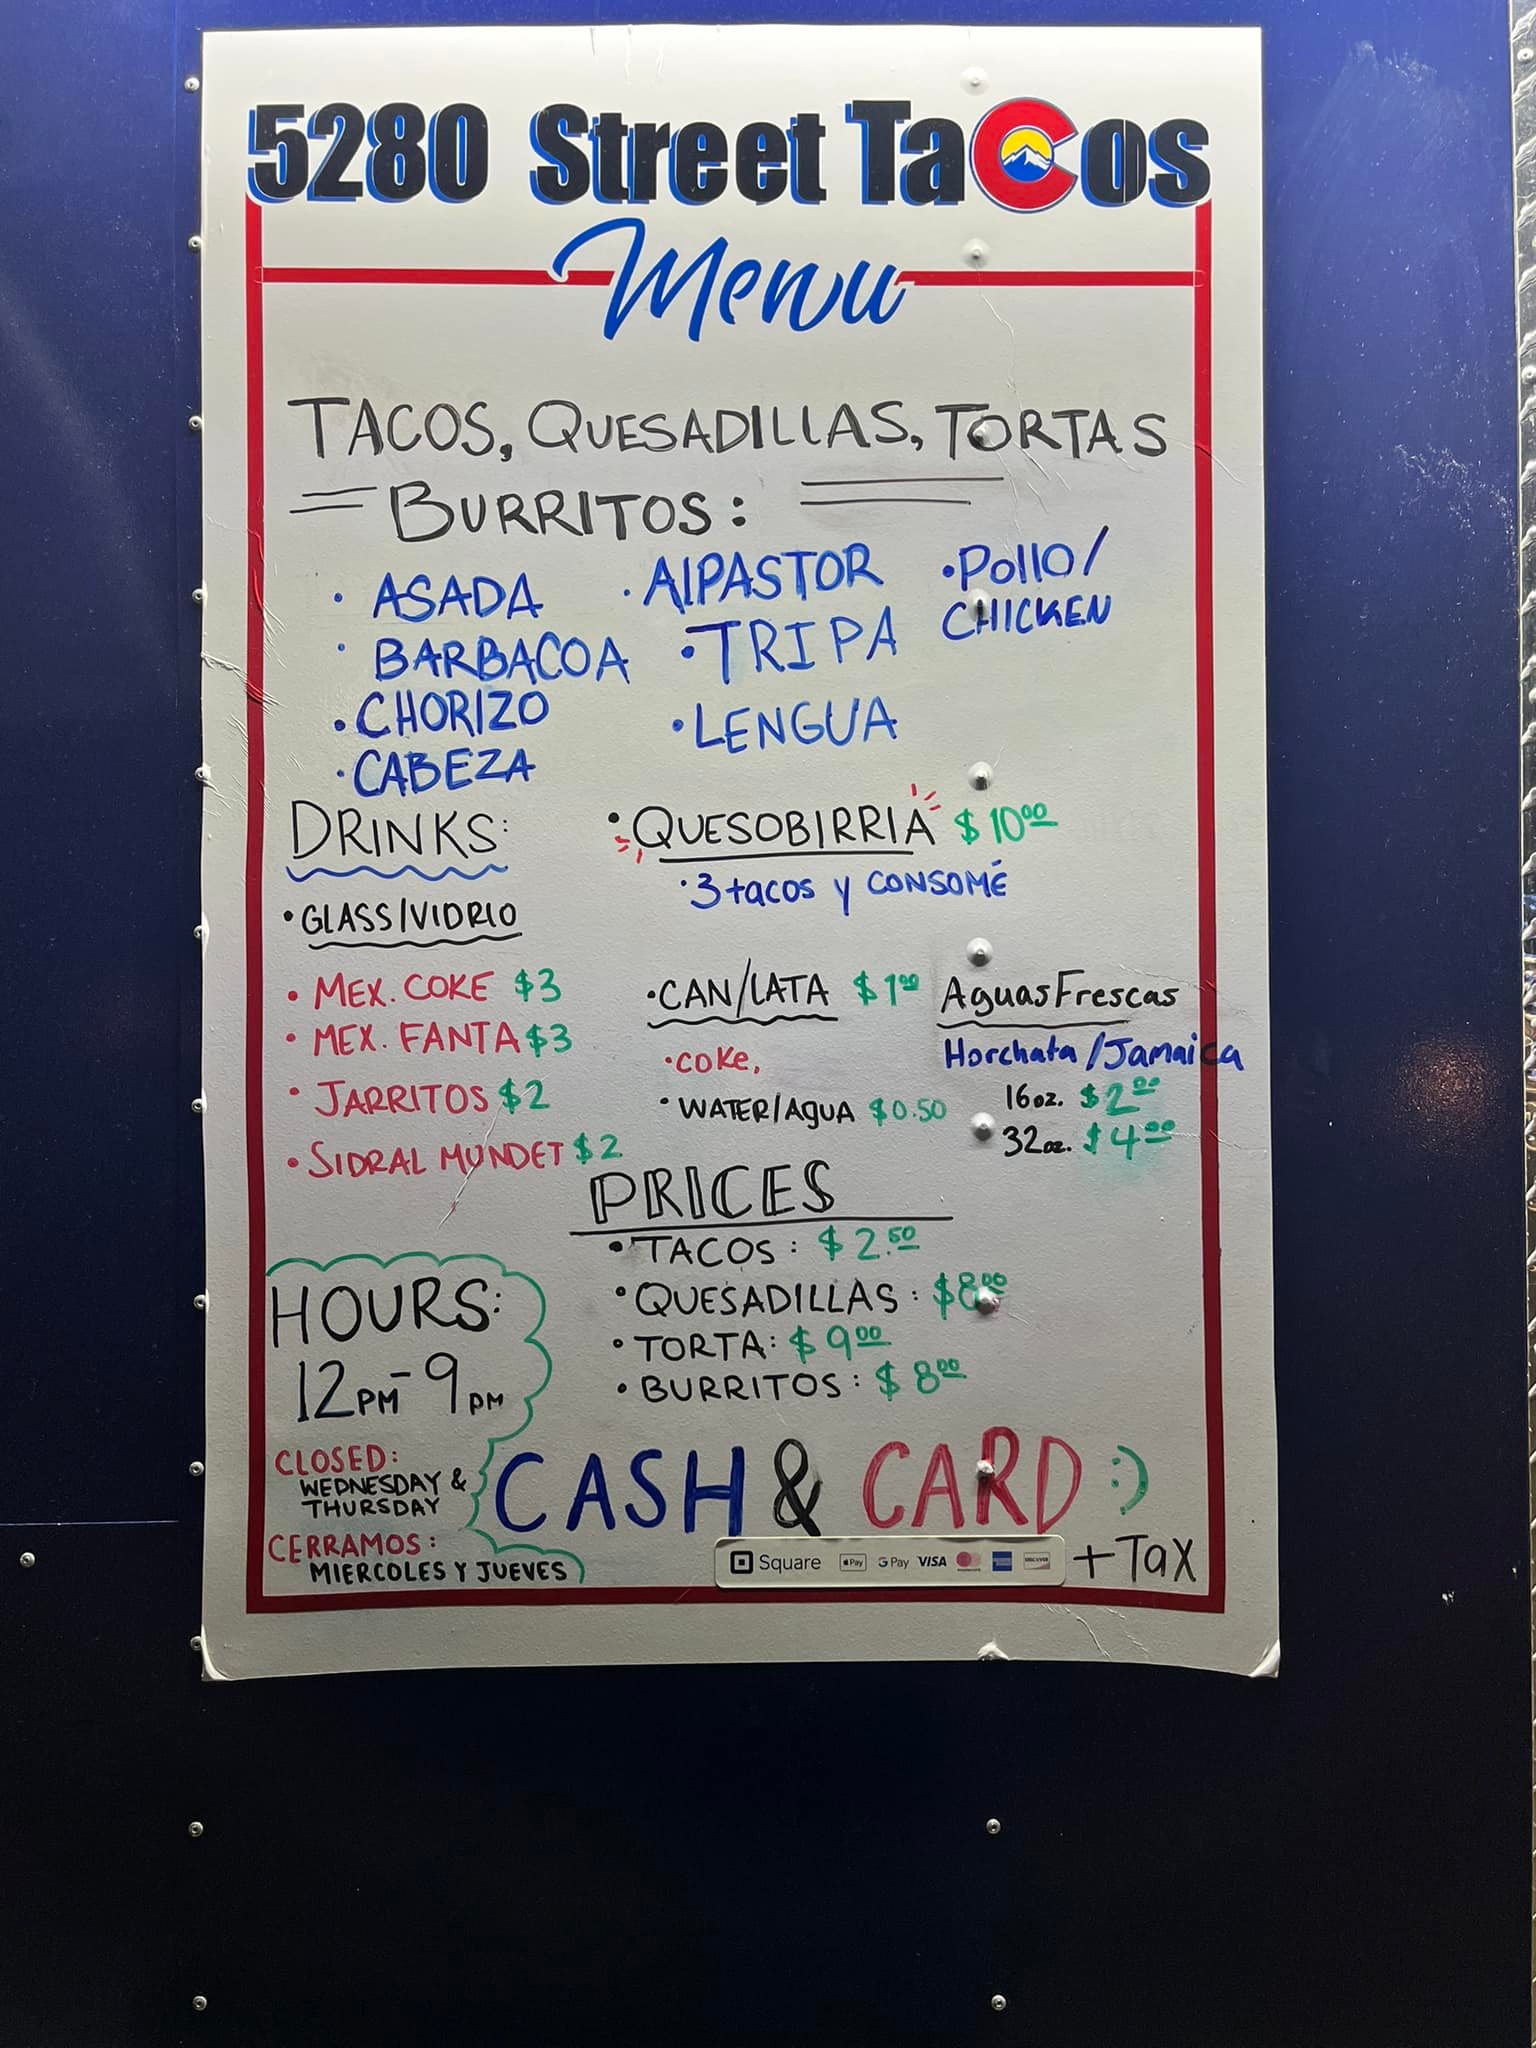 5280 Street Tacos
Menu
TACOS, QUESADILLAS, TORTAS
BURRITOS:
• ASADA
• BARBACOA
• CHORIZO
• CABEZA
• AlPASTOR
• TRIPA
• LENGUA
• Pollo/
CHICKEN
• QUESOBIRRIA $10.00
• 3 tacos y CONSOMÉ
DRINKS:
• GLASS/VIDRIO
• MEX. COKE $3
• MEX. FANTA $3
• JARRITOS $2
• SIDRAL MUNDET $2
• CAN/LATA $1.00
• COKE,
• WATER/AgUA $0.50
Aguas Frescas
Horchata/Jamaica
16oz. $2.00
32oz. $4.00
PRICES
• TACOS: $2.50
• QUESADILLAS: $8.00
• TORTA: $9.00
• BURRITOS: $8.00
HOURS:
12PM-9PM
CLOSED:
WEDNESDAY &
THURSDAY
CERRAMOS:
MIERCOLES Y JUEVES
CASH & CARD :)
Square Pay G Pay VISA mastercard AMERICAN EXPRESS DISCOVER
+Tax